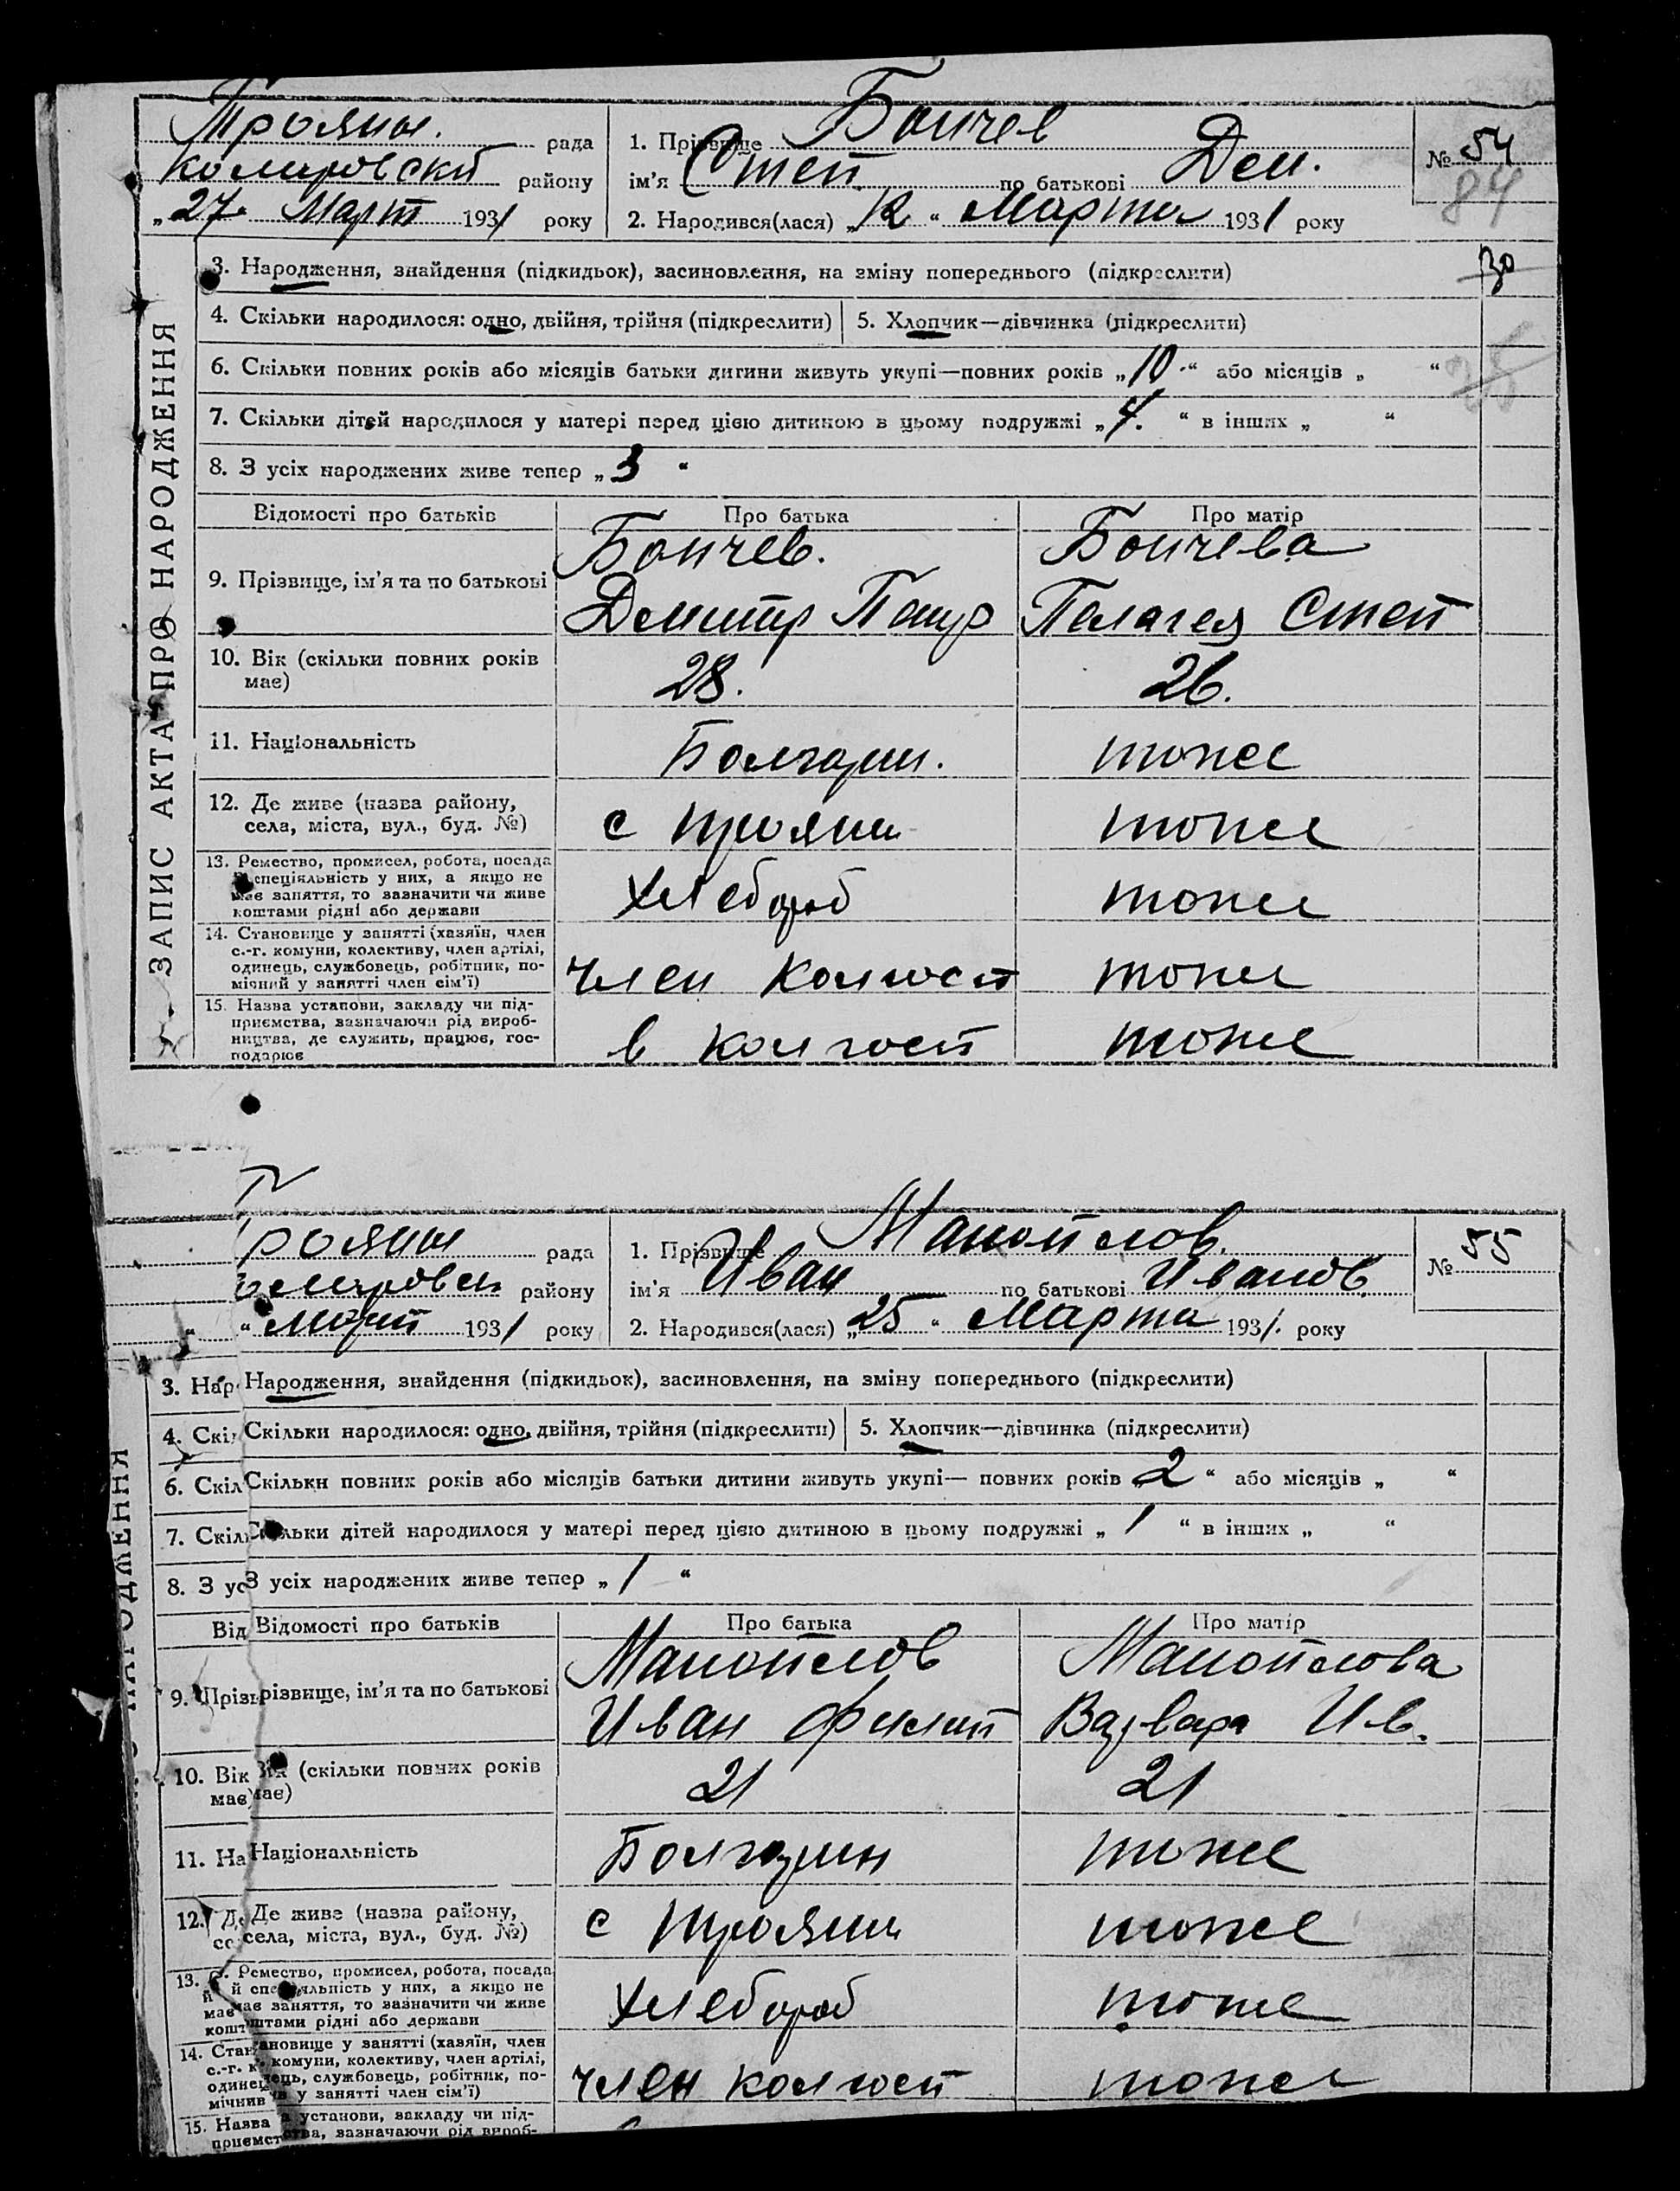 Трояны. рада
Комаровский району
„27“ Март 1931 року
1. Прізвище Бончев
ім'я Степ. по батькові Дем.
2. Народився(лася) „12“ Марта 1931 року
№ 54
84
30
ЗАПИС АКТА ПРО НАРОДЖЕННЯ
3. Народження, знайдення (підкидьок), засиновлення, на зміну попереднього (підкреслити)
4. Скільки народилося: одно, двійня, трійня (підкреслити) 5. Хлопчик—дівчинка (підкреслити)
6. Скільки повних років або місяців батьки дитини живуть укупі—повних років „10.“ або місяців „ “
7. Скільки дітей народилося у матері перед цією дитиною в цьому подружжі „4.“ в інших „ “
8. З усіх народжених живе тепер „3“
Відомості про батьків Про батька Про матір
9. Прізвище, ім'я та по батькові
Бончев. Бончева
Демитр Пейр Пелагея Степ
10. Вік (скільки повних років
має)
28. 26.
11. Національність Болгарин. тоже
12. Де живе (назва району,
села, міста, вул., буд. №)
с Трояны тоже
13. Ремество, промисел, робота, посада
й спеціяльність у них, а якщо не
має заняття, то зазначити чи живе
коштами рідні або держави
Хлебороб тоже
14. Становище у занятті (хазяїн, член
с.-г. комуни, колективу, член артілі,
одинець, службовець, робітник, по-
мічний у занятті член сім'ї)
член колгосп тоже
15. Назва установи, закладу чи під-
приємства, зазначаючи рід вироб-
ництва, де служить, працює, гос-
подарює
в колгосп тоже
рояны рада
омаровск району
“ Март 1931 року
1. Прізвище Манойлов.
ім'я Иван по батькові Иванов.
2. Народився(лася) „25“ Марта 1931. року
№ 55
3. Нар Народження, знайдення (підкидьок), засиновлення, на зміну попереднього (підкреслити)
4. Скіл Скільки народилося: одно, двійня, трійня (підкреслити) 5. Хлопчик—дівчинка (підкреслити)
6. Скіл Скільки повних років або місяців батьки дитини живуть укупі— повних років „2“ або місяців „ “
7. Скіл Скільки дітей народилося у матері перед цією дитиною в цьому подружжі „1“ в інших „ “
8. З ус З усіх народжених живе тепер „1“
Від Відомості про батьків Про батька Про матір
9. Прізв різвище, ім'я та по батькові
Манойлов Манойлова
Иван Филип Варвара Ив.
10. Вік Вік (скільки повних років
має) має)
21 21
11. На Національність Болгарин тоже
12. Де Де живе (назва району,
се села, міста, вул., буд. №)
с Трояны тоже
13. Ремество, промисел, робота, посада
й й спеціяльність у них, а якщо не
має має заняття, то зазначити чи живе
кошт штами рідні або держави
Хлебороб тоже
14. Стан ановище у занятті (хазяїн, член
с.-г. к комуни, колективу, член артілі,
одинец нець, службовець, робітник, по-
мічний у занятті член сім'ї)
член колгосп тоже
15. Назва установи, закладу чи під-
приємст ства, зазначаючи рід вироб-
НАРОДЖЕННЯ